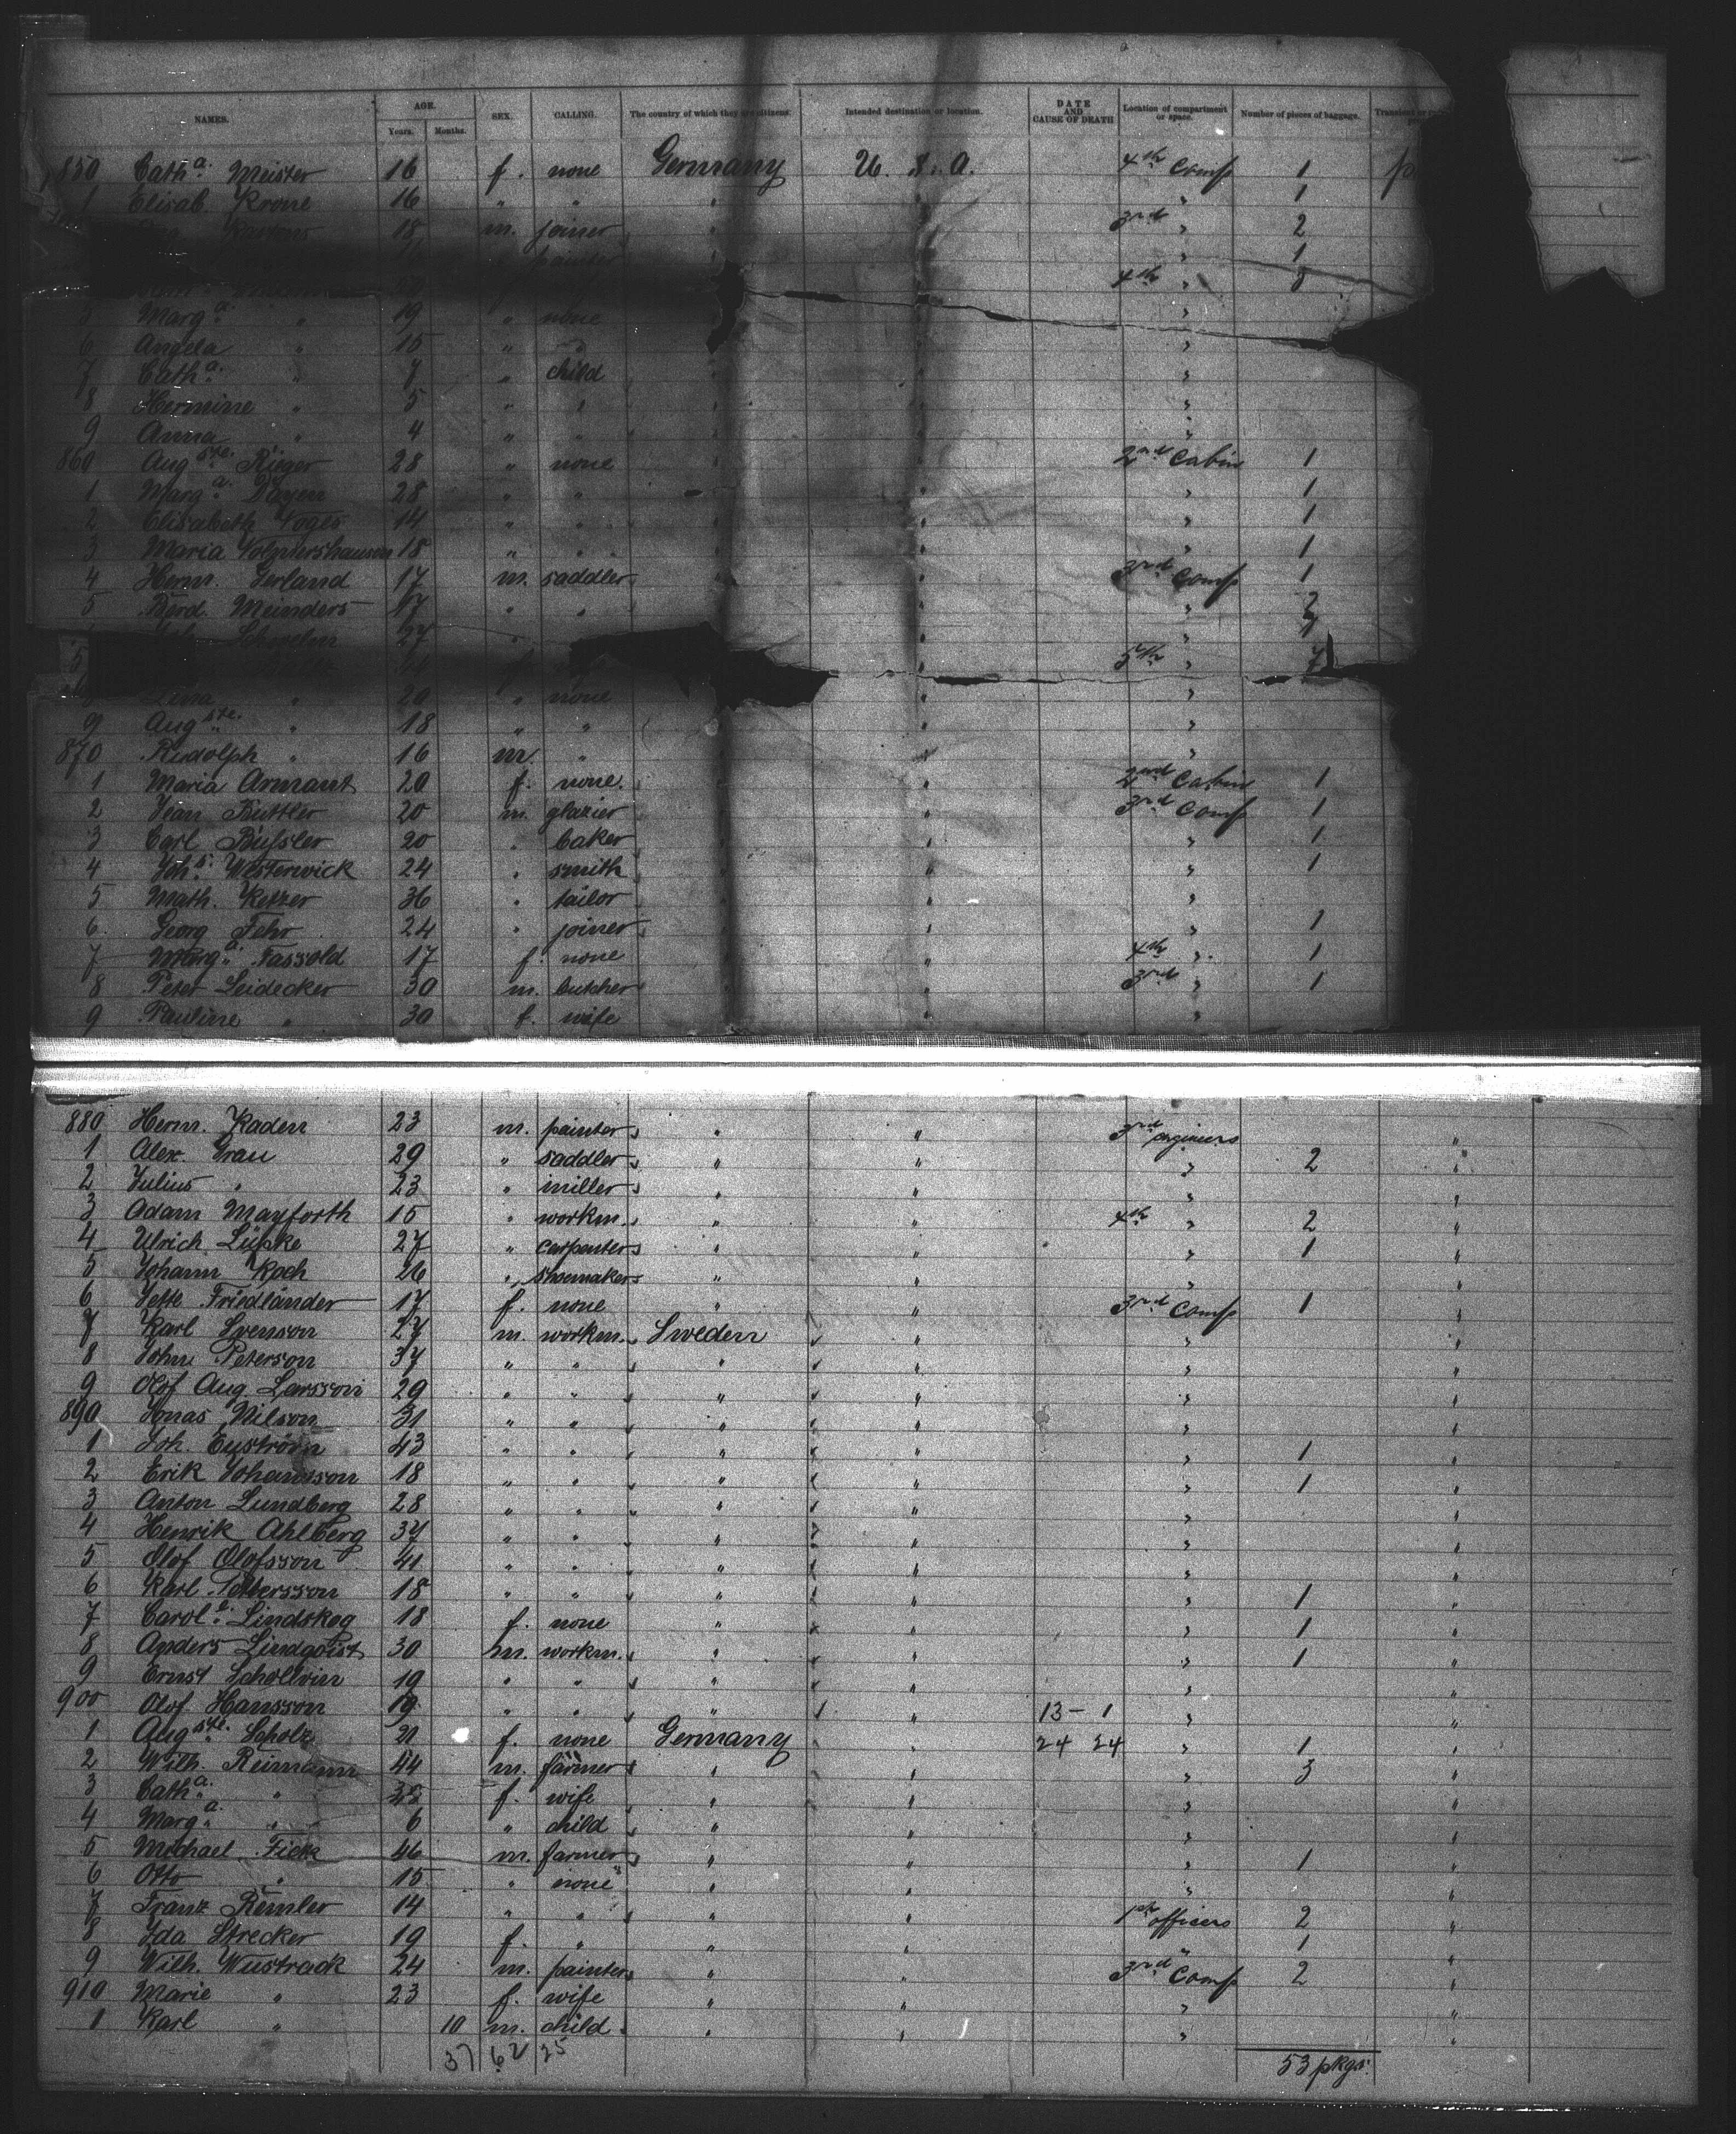 NAMES. AGE. SEX. CALLING. The country of which they are citizens. Intended destination or location. DATE AND CAUSE OF DEATH Location of compartment or space. Number of pieces of baggage.
Years. Months.
850 Cath.a Meister 16 f. none Germany U. S. A. 4th Comp 1
1 Elisab. Krone 16 " " " " " 1
18 m. joiner " " 3rd " 2
painter " " " 1
4th "
5 Marg.a " 19 " none " " "
6 Angela " 15 " " " " "
7 Cath.a " 7 " child " " "
8 Hermine " 5 " " " " "
9 Anna " 4 " " " " "
860 Aug.ste Rieger 28 " none " " 2nd Cabin 1
1 Marg.a Dayen 28 " " " " " 1
2 Elisabeth Voges 14 " " " " " 1
3 Maria Volmershausen 18 " " " " " 1
4 Herm. Gerland 17 m. saddler " " 3rd Comp 1
5 Berd. Meinders 17 " " " " " 2
27 " " "
5th "
Lina " 20 " none " " "
9 Aug.ste " 18 " " " " "
870 Rudolph " 16 m. " " " "
1 Maria Armant 20 f. none " " 2nd Cabin 1
2 Jean Buttler 20 m. glazier " " 3rd Comp 1
3 Carl Büssler 20 " baker " " " 1
4 Joh.s Westerwick 24 " smith " " " 1
5 Math. Ketzer 36 " tailor " " "
6 Georg Fehr 24 " joiner " " " 1
7 Marg.a Fassold 17 f. none " " 4th " 1
8 Peter Leidecker 30 m. butcher " " 3rd " 1
9 Pauline " 30 f. wife " " "
880 Herm. Kaden 23 m. painter " " 3rd engineers "
1 Alex. Grau 29 " saddler " " " 2 "
2 Julius " 23 " miller " " " "
3 Adam Mayforth 15 " workm. " " 4th " 2 "
4 Ulrich Lüpke 27 " carpenter " " " 1 "
5 Johann Koch 26 " shoemaker " " " "
6 Jette Friedländer 17 f. none " " 3rd Comp 1 "
7 Karl Svenson 27 m. workm. Sweden " " "
8 John Peterson 37 " " " " " "
9 Olof Aug. Larsson 29 " " " " " "
890 Jonas Nilson 31 " " " " " "
1 Joh. Enström 43 " " " " " 1 "
2 Erik Johansson 18 " " " " " 1 "
3 Anton Lundberg 28 " " " " " "
4 Henrik Ahlberg 37 " " " " " "
5 Olof Olofsson 41 " " " " " "
6 Karl Pettersson 18 " " " " " 1 "
7 Carol.e Lindskog 18 f. none " " " 1 "
8 Anders Lindqvist 30 m. workm. " " " 1 "
9 Ernst Schollvin 19 " " " " " "
900 Olof Hansson 19 " " " " 13 - 1 " "
1 Aug.ste Scholz 21 f. none Germany " 24 24 " 1 "
2 Wilh. Reimann 44 m. farmer " " " 3 "
3 Cath.a " f. wife " " " "
4 Marg.a " 6 " child " " " "
5 Michael Fick 46 m. farmer " " " 1 "
6 Otto " 15 " none " " " "
7 Franz Remler 14 " " " " 1st officers 2 "
8 Ida Strecker 19 f. " " " " 1 "
9 Wilh. Wustrack 24 m. painter " " 3rd Comp 2 "
910 Marie " 23 f. wife " " " "
1 Karl " 10 m. child " " " "
37 62 25 53 pkgs.